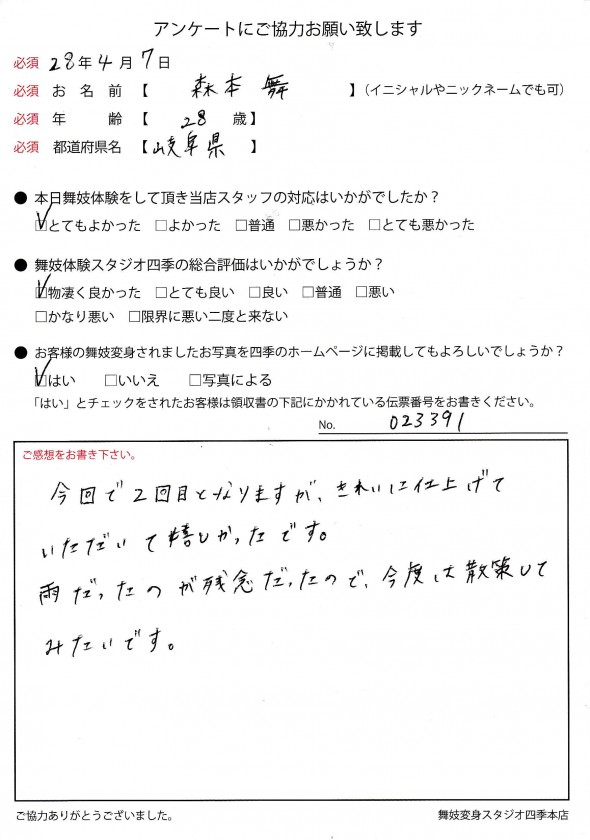 アンケートにご協力お願い致します
必須 28年4月7日
必須 お名前【 森本 舞 】(イニシャルやニックネームでも可)
必須 年齢【 28 歳】
必須 都道府県名【岐阜県 】
● 本日舞妓体験をして頂き当店スタッフの対応はいかがでしたか?
☑とてもよかった □よかった □普通 □悪かった □とても悪かった
● 舞妓体験スタジオ四季の総合評価はいかがでしょうか?
☑物凄く良かった □とても良い □良い □普通 □悪い
□かなり悪い □限界に悪い二度と来ない
● お客様の舞妓変身されましたお写真を四季のホームページに掲載してもよろしいでしょうか?
☑はい □いいえ □写真による
「はい」とチェックをされたお客様は領収書の下記にかかれている伝票番号をお書きください。
No. 023391
ご感想をお書き下さい。
今回で2回目となりますが、きれいに仕上げて
いただいて嬉しかったです。
雨だったのが残念だったので、今度は散策して
みたいです。
ご協力ありがとうございました。 舞妓変身スタジオ四季本店